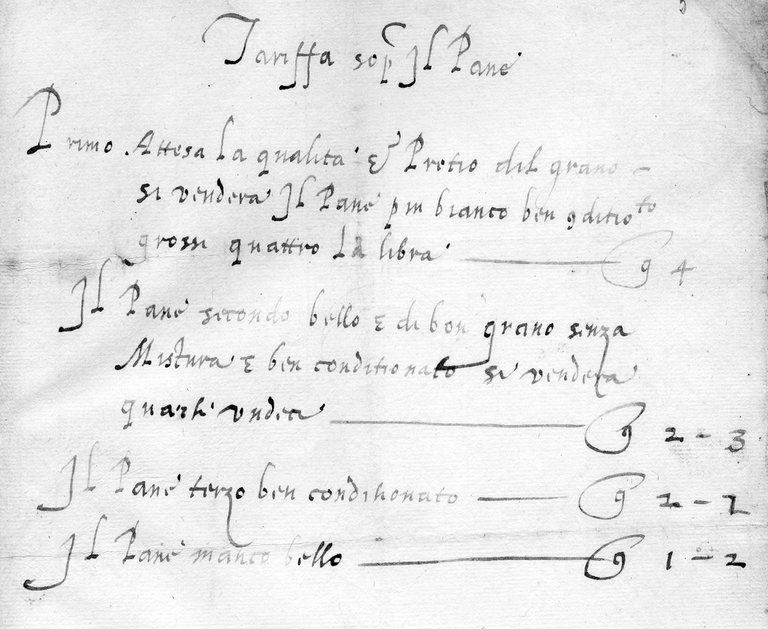 Tariffa sop Il Pane
Primo Attesa La qualita & Pretio del grano
si vendera Il Pane piu bianco ben 9ditioto
grossi quattro La libra g 4
Il Pane secondo bello E di bon grano senza
Mistura E ben conditionato si vendera
quarti vndeci g 2 - 3
Il Pane terzo ben conditionato g 2 - 2
Il Pane manco bello g 1 - 2